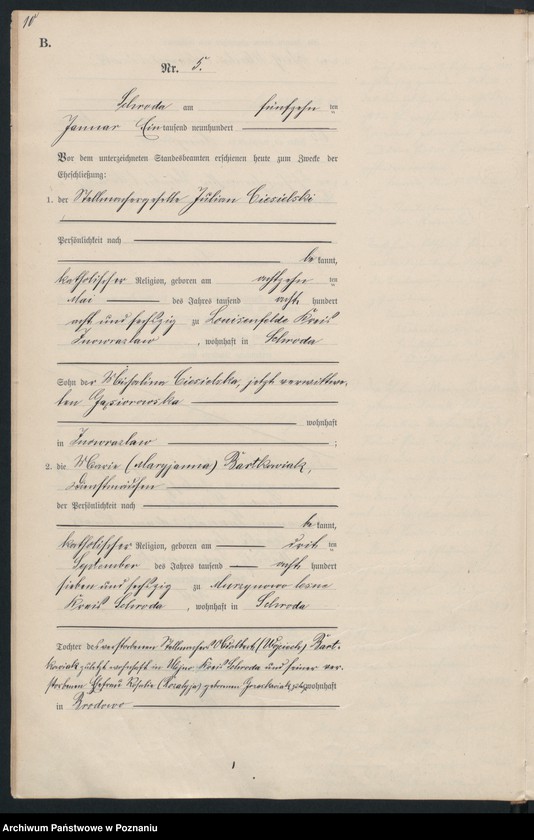 10
B.
Nr. 5.
Schroda am fünfzehn ten
Januar Eintausend neunhundert
Vor dem unterzeichneten Standesbeamten erschienen heute zum Zwecke der
Eheschließung:
1. der Stellmachergeselle Julian Ciesielski
Persönlichkeit nach
be kannt,
katholischer Religion, geboren am achtzehn ten
Mai des Jahres tausend acht hundert
acht und sechszig zu Louisenfelde Kreis
Inowrazlaw, wohnhaft in Schroda
Sohn der Michalina Ciesielska, jetzt verwittwe-
ten Gąsiorowska
wohnhaft
in Inowrazlaw ;
2. die Marie (Maryjanna) Bartkowiak,
Dienstmädchen
der Persönlichkeit nach
be kannt,
katholischer Religion, geboren am drit ten
September des Jahres tausend acht hundert
sieben und sechszig zu Murzynowo lesne
Kreis Schroda, wohnhaft in Schroda
Tochter des verstorbenen Stellmachers Adalbert (Wojciech) Bart-
kowiak zuletzt wohnhaft in Kreis Schroda und seiner ver-
storbenen Ehefrau Rosalie geborenen wohnhaft
in Brodowo
Archiwum Państwowe w Poznaniu